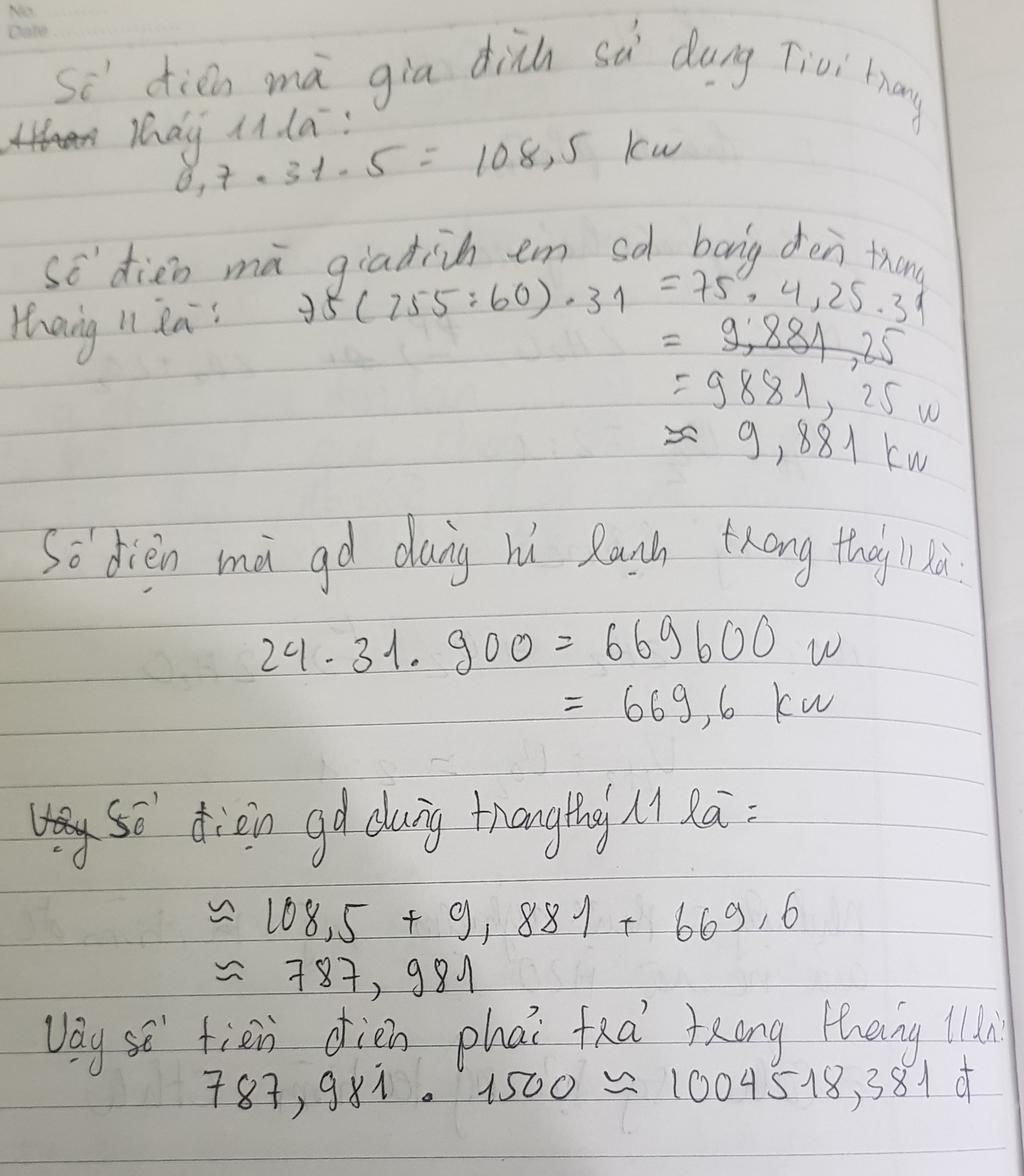 No.
Date
Số điện mà gia đình sử dụng Tivi trong
tháng 11 là:
0,7 . 31 . 5 = 108,5 kw
Số điện mà gia đình em sd bóng đèn trong
tháng 11 là: 75(255:60).31 = 75. 4,25.31
= 9,881,25
= 9881,25 w
≈ 9,881 kw
Số điện mà gd dùng tủ lạnh trong thág 11 là:
24.31.900 = 669600 w
= 669,6 kw
Vậy Số điện gd dùng trong thág 11 là:
≈ 108,5 + 9,881 + 669,6
≈ 787,981
Vậy số tiền điện phải trả trong tháng 11 là:
787,981 . 1500 ≈ 1004518,381 đ